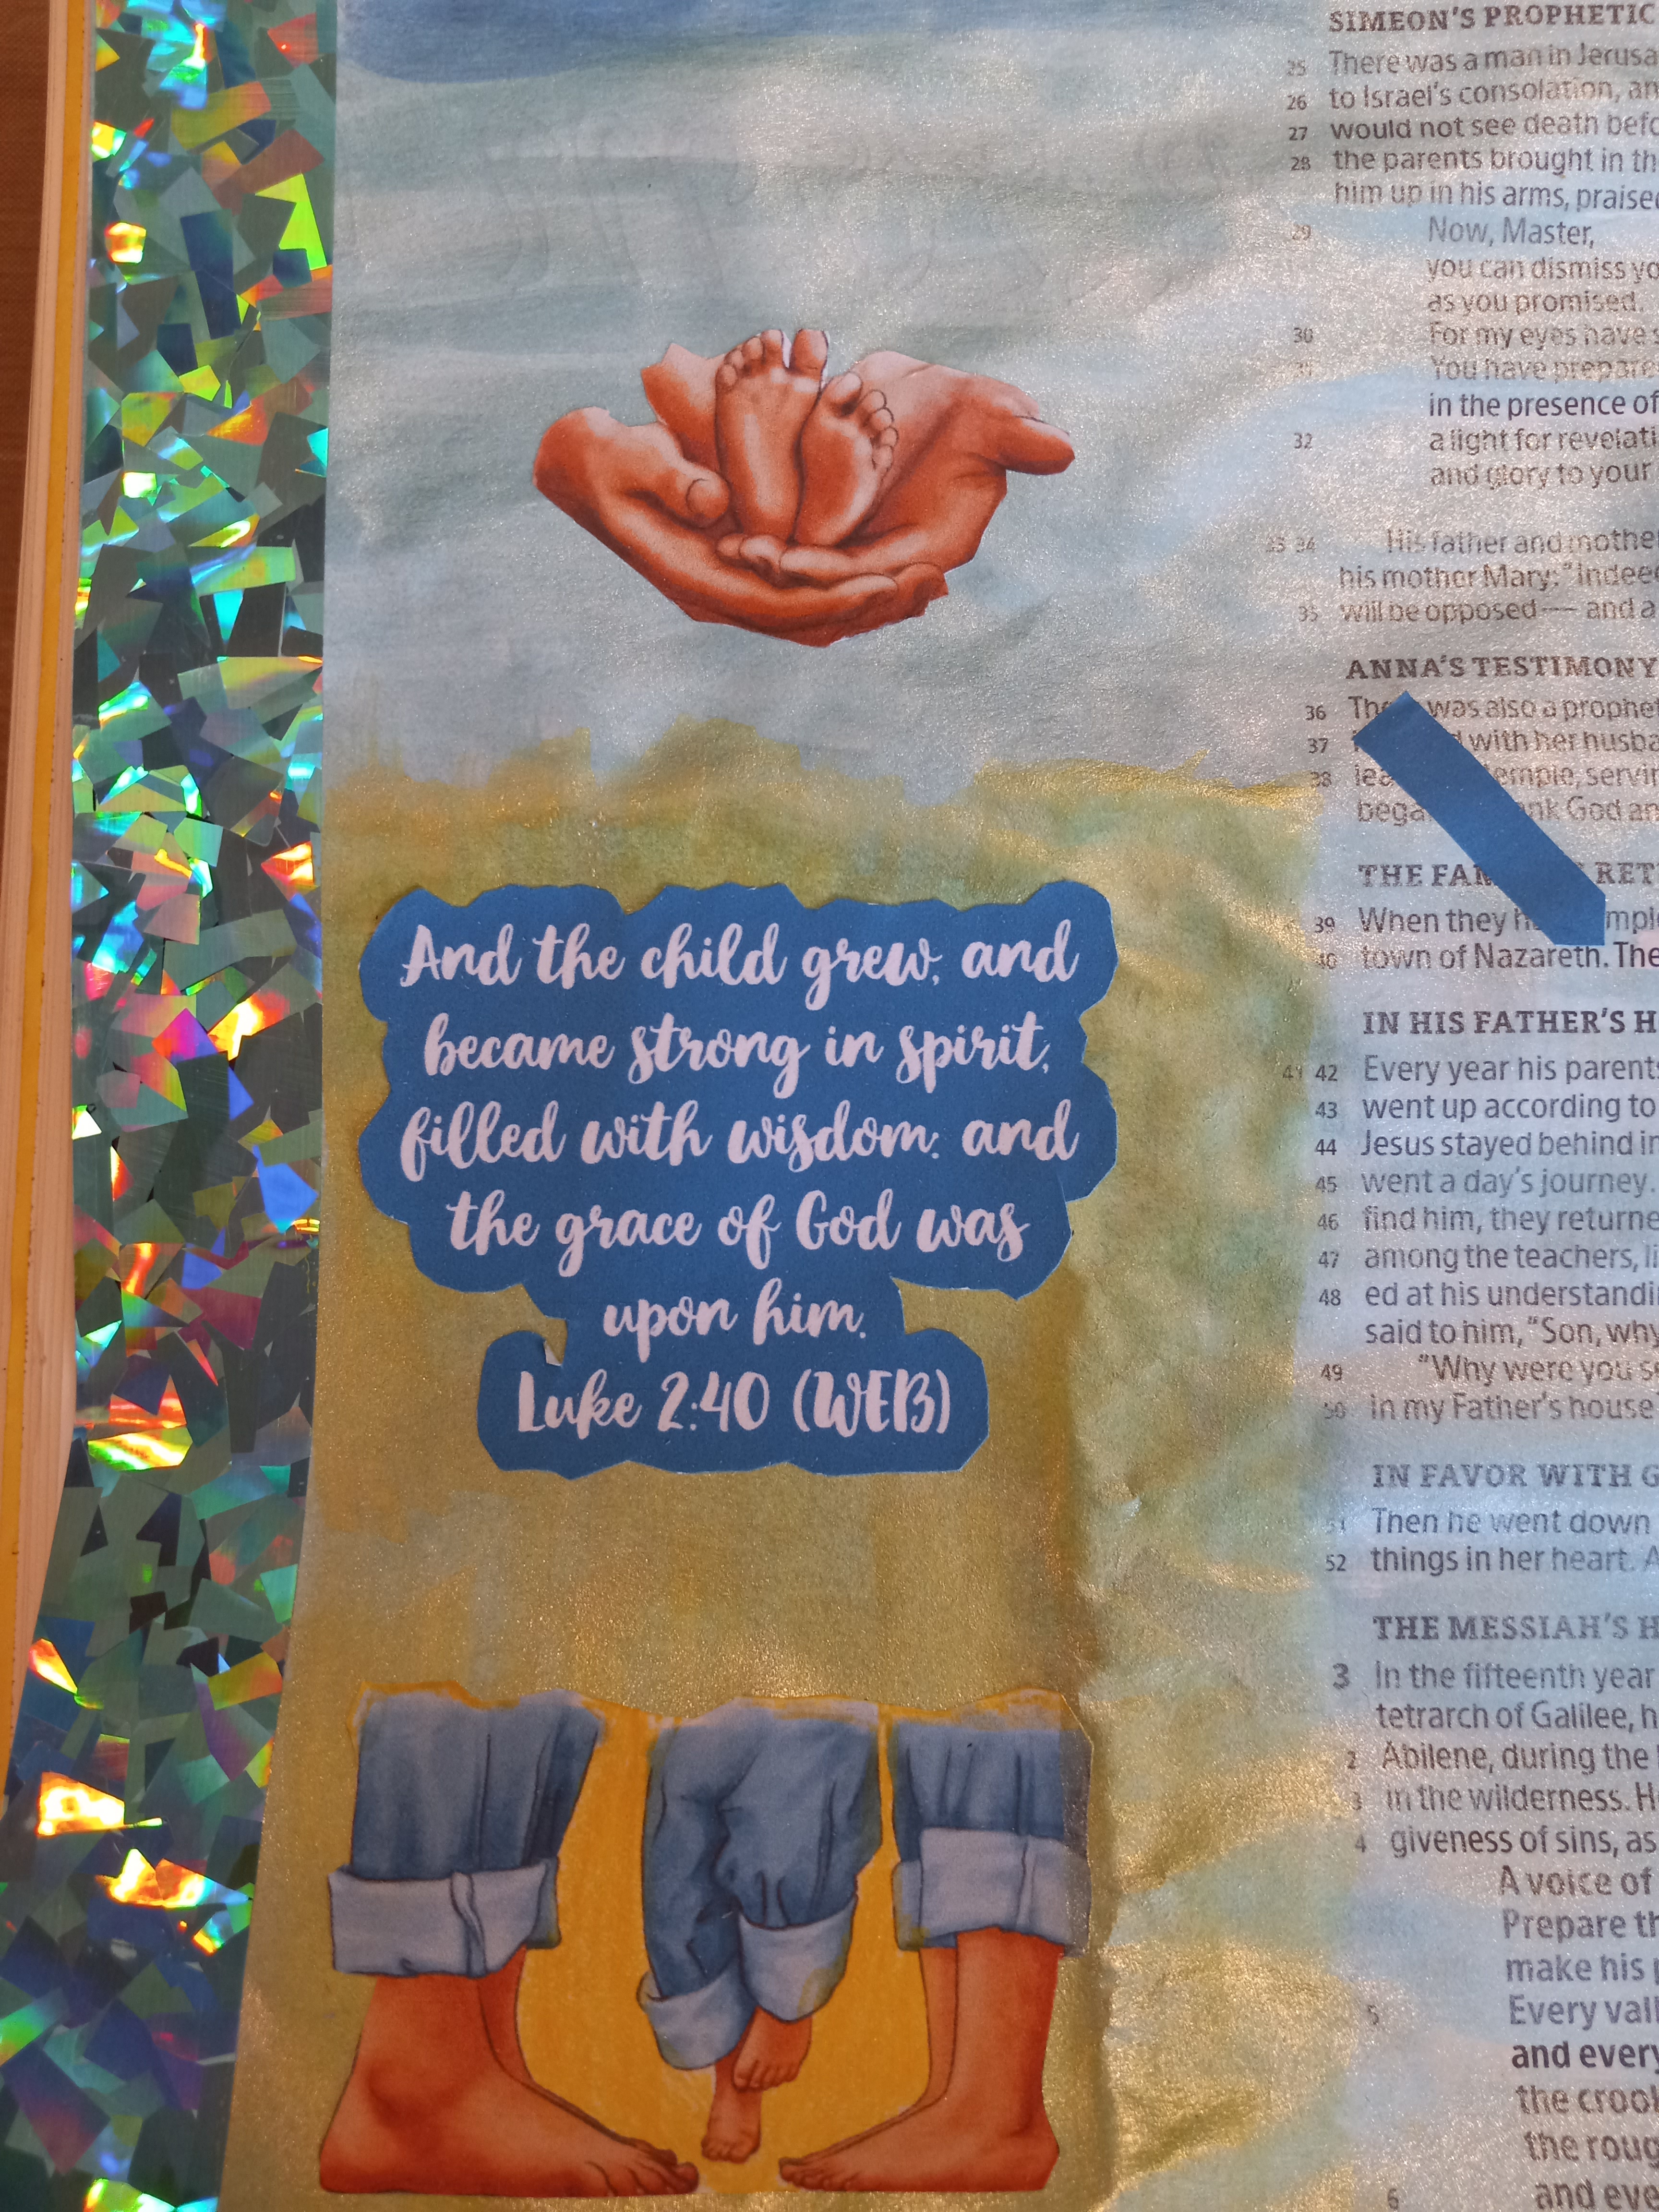 And the child grew, and
became strong in spirit,
filled with wisdom: and
the grace of God was
upon him.
Luke 2:40 (WEB)
SIMEON'S PROPHETIC
25 There was a man in
26 to Israel's consolation,
27 would not see death
28 the parents brought in
him up in his arms,
29 Now, Master,
you can dismiss
as you promised.
30 For my eyes have
31 You have
in the presence of
32 a light for
and glory to your
33 34 His father and
his mother Mary:
35 will be opposed — and a
ANNA'S TESTIMONY
36 was also a
37 with her
38
God
THE RET
39 When they
40 town of Nazareth.
IN HIS FATHER'S
41 42 Every year his
43 went up according to
44 Jesus stayed behind
45 went a day's journey.
46 find him, they
47 among the teachers,
48 ed at his
said to him, "Son,
49 "Why were you
50 in my Father's house
IN FAVOR WITH
51 Then he went down
52 things in her heart.
THE MESSIAH'S
3 In the fifteenth year
tetrarch of Galilee,
2 Abilene, during the
3 in the wilderness.
4 giveness of sins, as
A voice of
Prepare
make his
5 Every
and every
the
the
6 and